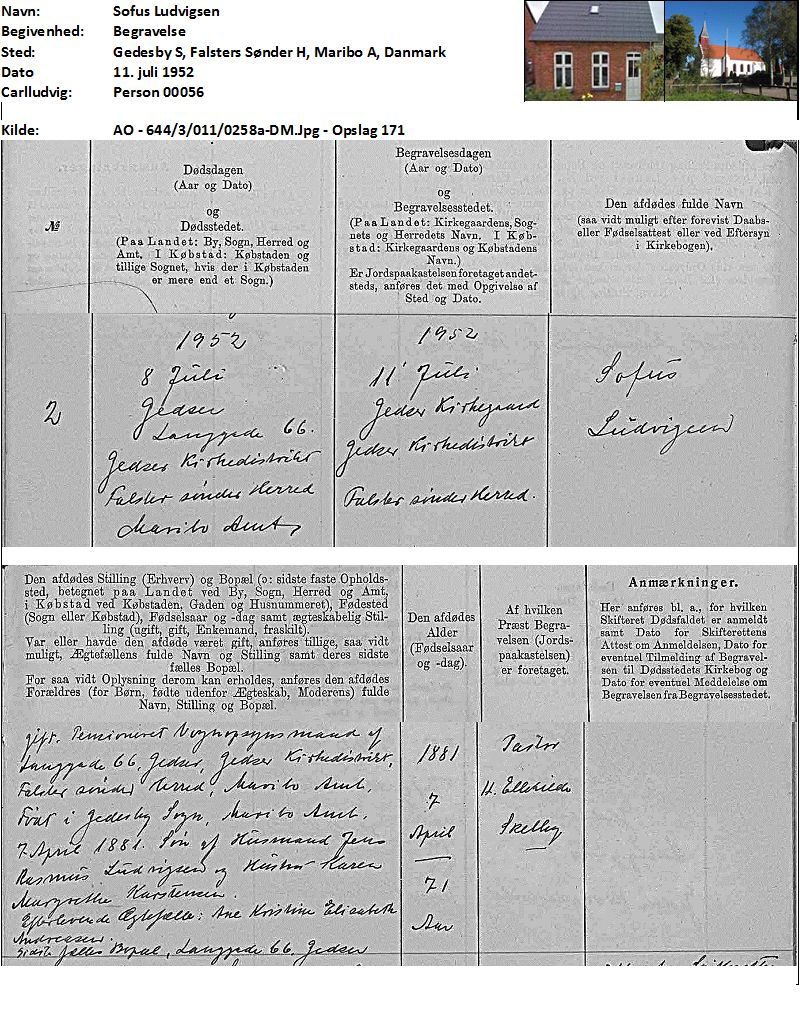 Navn: Sofus Ludvigsen
Begivenhed: Begravelse
Sted: Gedesby S, Falsters Sønder H, Maribo A, Danmark
Dato 11. juli 1952
Carlludvig: Person 00056
Kilde: AO - 644/3/011/0258a-DM.Jpg - Opslag 171
№
Dødsdagen
(Aar og Dato)
og
Dødsstedet.
(Paa Landet: By, Sogn, Herred og
Amt, I Købstad: Købstaden og
tillige Sognet, hvis der i Købstaden
er mere end et Sogn.)
Begravelsesdagen
(Aar og Dato)
og
Begravelsesstedet.
(Paa Landet: Kirkegaardens, Sog-
nets og Herredets Navn, I Køb-
stad: Kirkegaardens og Købstadens
Navn.)
Er Jordspaakastelsen foretaget andet-
steds, anføres det med Opgivelse af
Sted og Dato.
Den afdødes fulde Navn
(saa vidt muligt efter forevist Daabs-
eller Fødselsattest eller ved Eftersyn
i Kirkebogen).
2
1952
8 Juli
Gedser
Langgade 66.
Gedser Kirkedistrikt
Falster sønder Herred
Maribo Amt,
1952
11' Juli
Gedser Kirkegaard
Gedser Kirkedistrikt
Falster sønder Herred.
Sofus
Ludvigsen
Den afdødes Stilling (Erhverv) og Bopæl (ɔ: sidste faste Opholds-
sted, betegnet paa Landet ved By, Sogn, Herred og Amt,
i Købstad ved Købstaden, Gaden og Husnummeret), Fødested
(Sogn eller Købstad), Fødselsaar og -dag samt ægteskabelig Stil-
ling (ugift, gift, Enkemand, fraskilt).
Var eller havde den afdøde været gift, anføres tillige, saa vidt
muligt, Ægtefællens fulde Navn og Stilling samt deres sidste
fælles Bopæl.
For saa vidt Oplysning derom kan erholdes, anføres den afdødes
Forældres (for Børn, fødte udenfor Ægteskab, Moderens) fulde
Navn, Stilling og Bopæl.
Den afdødes
Alder
(Fødselsaar
og -dag).
Af hvilken
Præst Begra-
velsen (Jords-
paakastelsen)
er foretaget.
Anmærkninger.
Her anføres bl. a., for hvilken
Skifteret Dødsfaldet er anmeldt
samt Dato for Skifterettens
Attest om Anmeldelsen, Dato for
eventuel Tilmelding af Begravel-
sen til Dødsstedets Kirkebog og
Dato for eventuel Meddelelse om
Begravelsen fra Begravelsesstedet.
gift. Pensioneret Vognopsynsmand af
Langgade 66, Gedser, Gedser Kirkedistrikt,
Falster sønder Herred, Maribo Amt.
Født i Gedesby Sogn, Maribo Amt.
7 April 1881. Søn af Husmand Jens
Rasmus Ludvigsen og Hustru Karen
Margrethe Karstensen.
Efterlevende Ægtefælle: Ane Kristine Elisabeth
Andreasen.
Sidste fælles Bopæl, Langgade 66, Gedser
1881
7
April
71
Aar
Pastor
Skelby